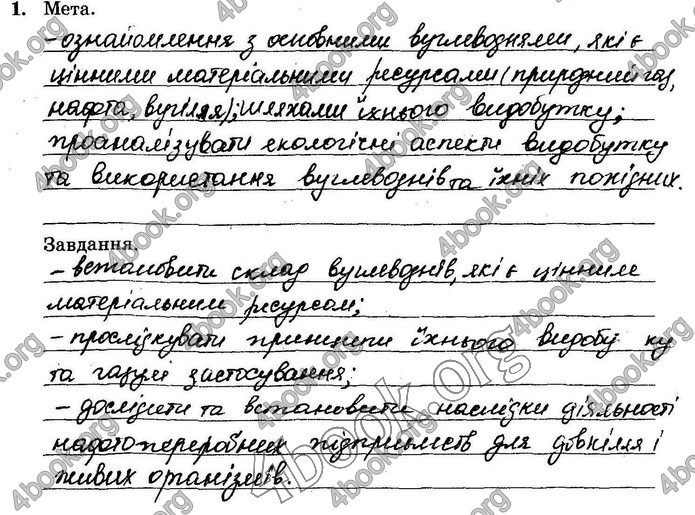 1. Мета.
- ознайомлення з основними вуглеводнями, які є
цінними матеріальними ресурсами (природний газ,
нафта, вугілля); шляхами їхнього видобутку;
проаналізувати екологічні аспекти видобутку
та використання вуглеводнів та їхніх похідних.
Завдання.
- встановити склад вуглеводнів, які є цінним
матеріальним ресурсом;
- прослідкувати принципи їхнього видобу ку
та галузі застосування;
- дослідити та встановити наслідки діяльності
нафто-переробних підприємств для довкілля і
живих організмів.
4book.org